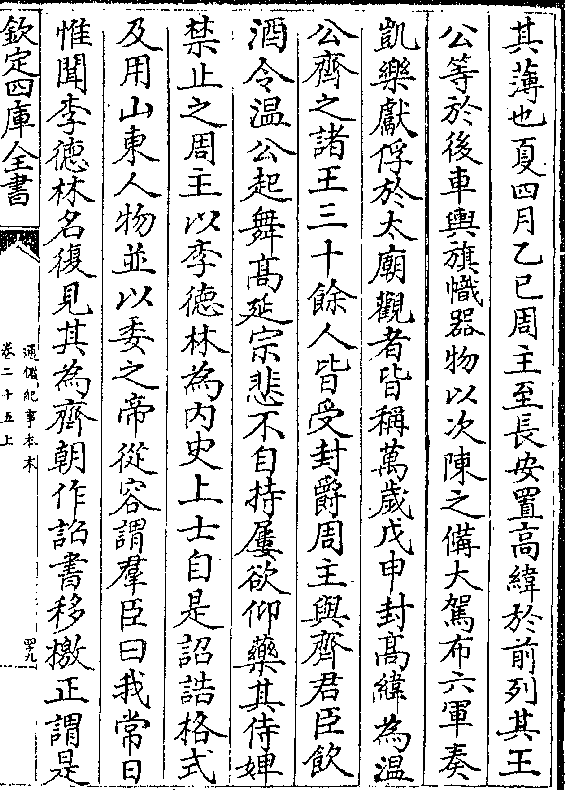 其薄也夏四月乙巳周主至長安置高緯於前列其王
公等於後車輿旗幟器物以次陳之備大駕布六軍奏
凱樂獻俘於太廟觀者皆稱萬歲戊申封髙緯為溫
公齊之諸王三十餘人皆受封爵周主與齊君臣飲
酒令温公起舞髙延宗悲不自持屢欲仰藥其侍婢
禁止之周主以李德林為内史上士自是詔誥格式
及用山東人物並以委之帝從容謂羣臣曰我常日
惟聞李德林名復見其為齊朝作詔書移檄正謂是
欽定四庫全書
通鑑紀事本末
卷二十五上
四九